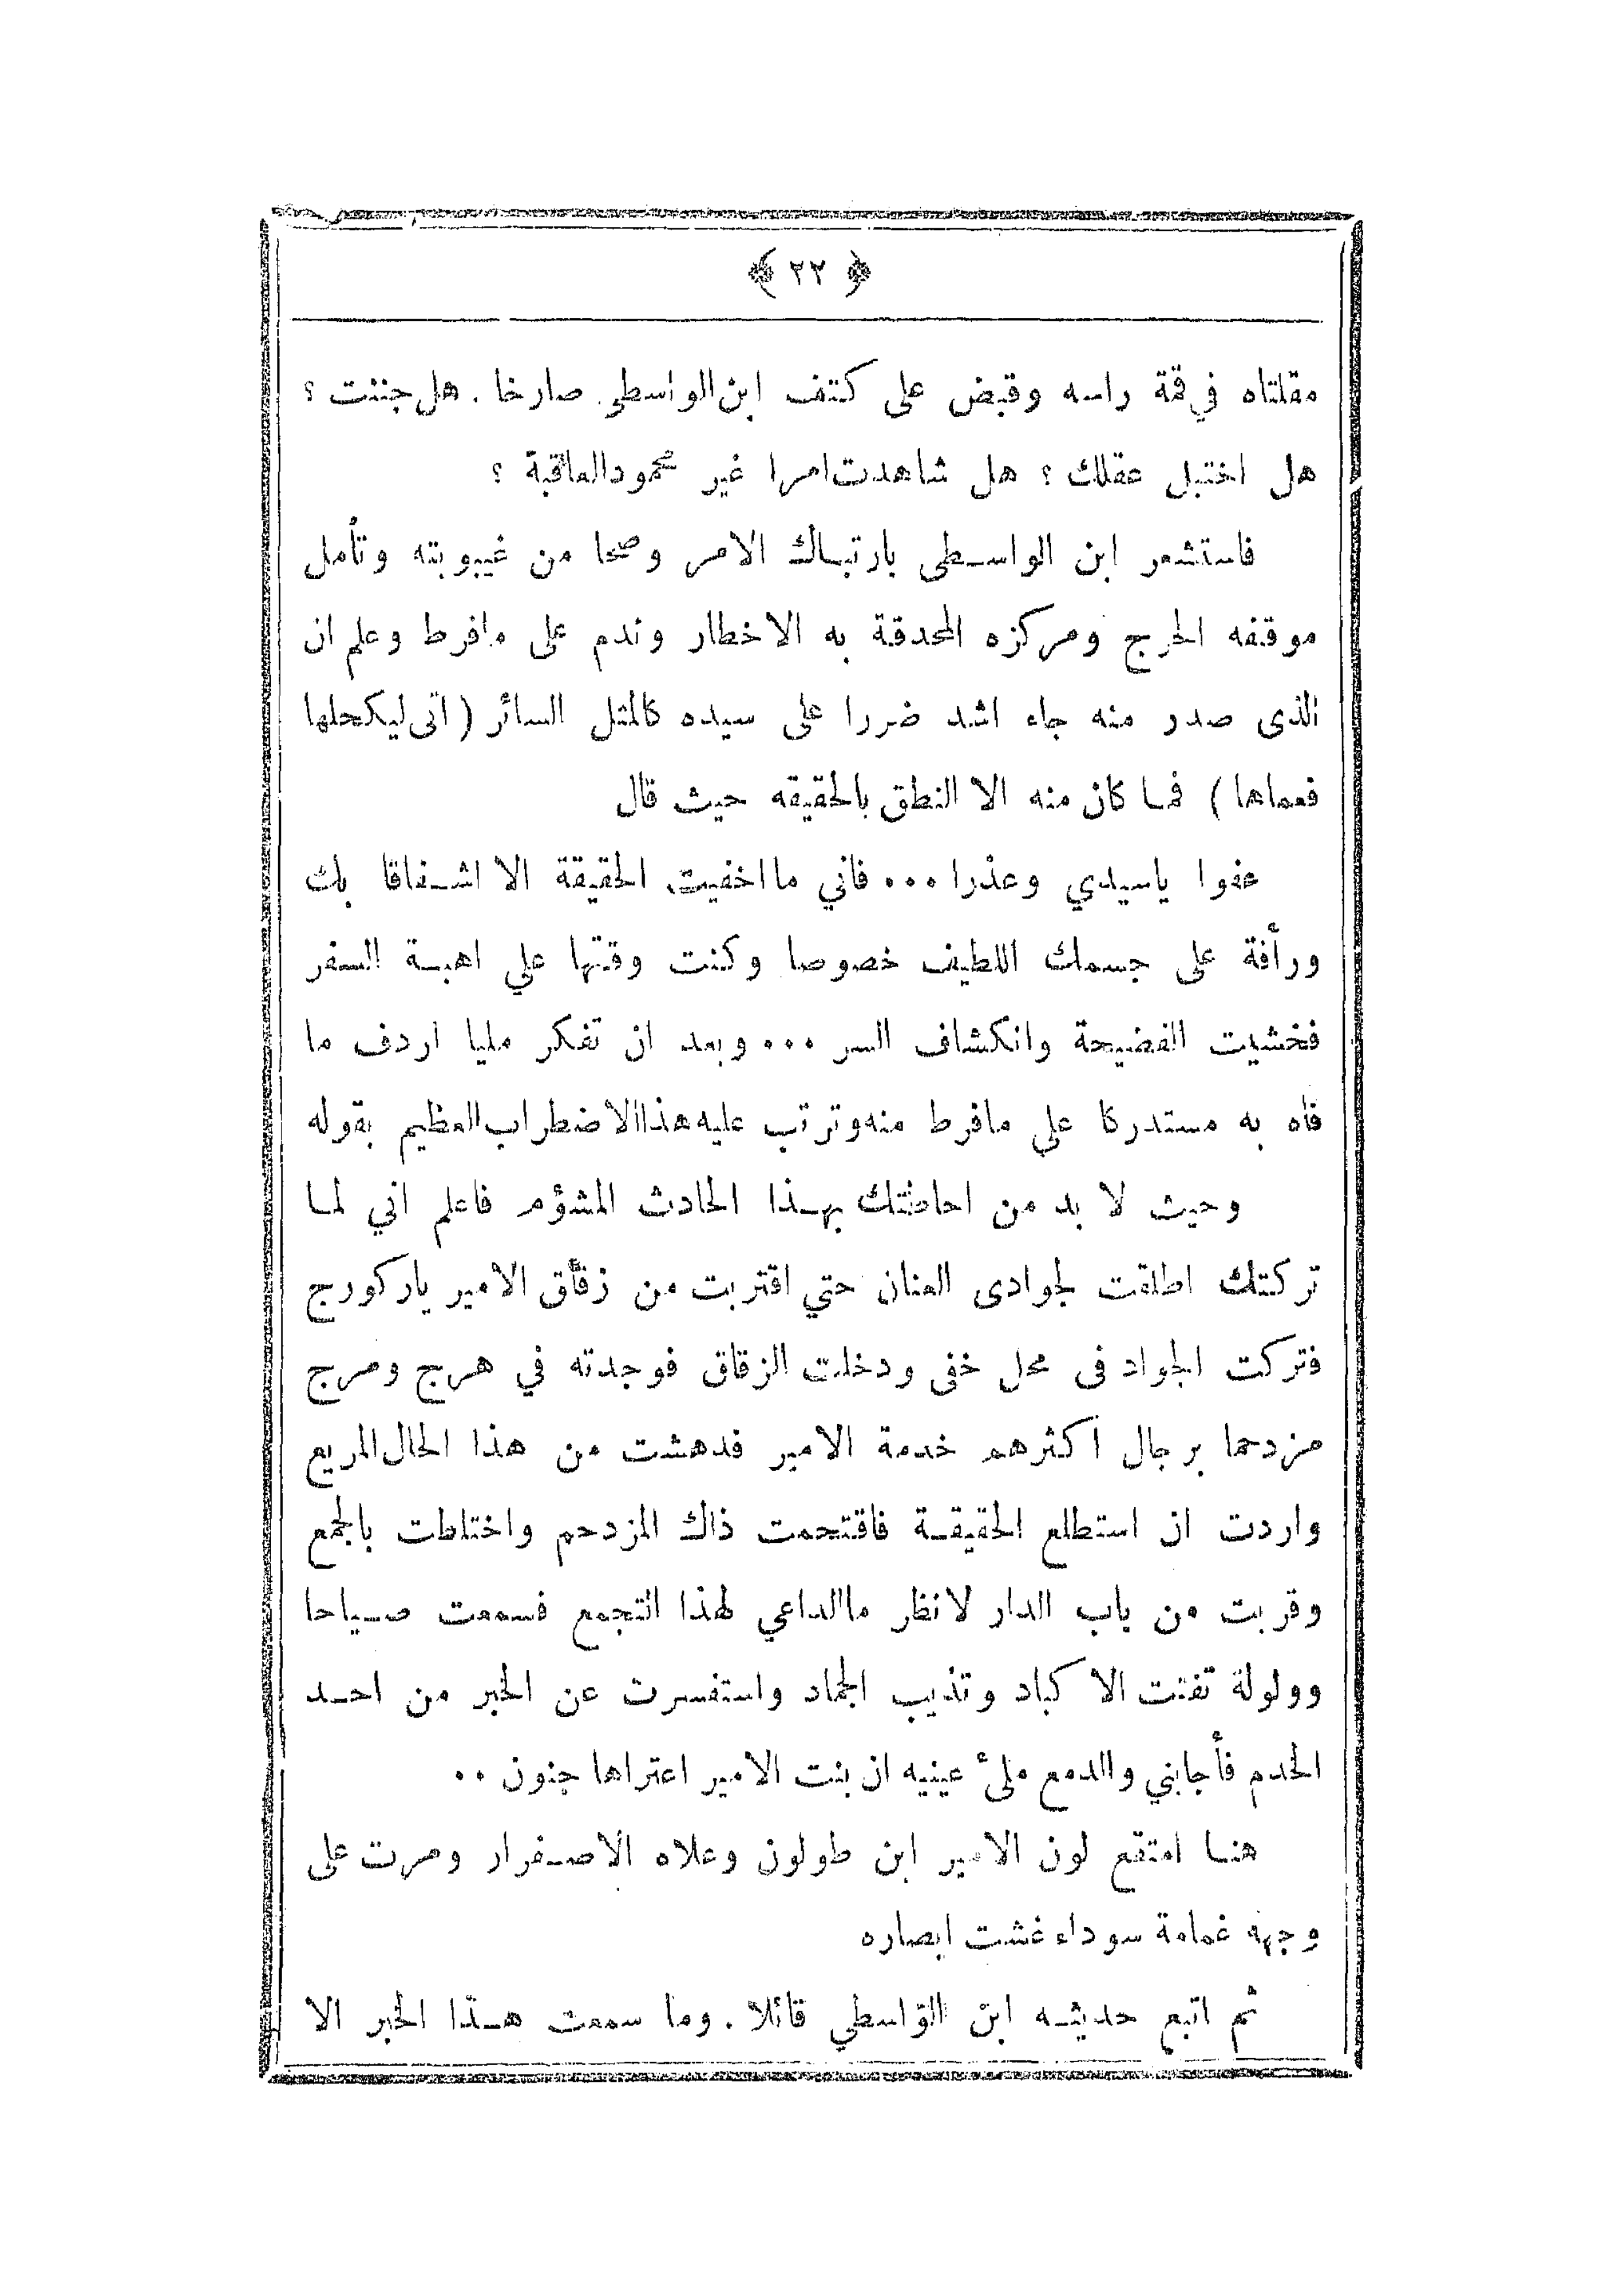 ﴿ ٢٢ ﴾
مقلتاه في قمة راسه وقبض على كتف ابن الواسطى صارخا . هل جننت ؟
هل اختبل عقلك ؟ هل شاهدت امرا غير محمود العاقبة ؟
فاستشعر ابن الواسطى بارتباك الامر وصحا من غيبوبته وتأمل
موقفه الحرج ومركزه المحدقة به الاخطار وندم على مافرط وعلم ان
الذى صدر منه جاء اشد ضررا على سيده كالمثل السائر ( اتى ليكحلها
فعماها ) فما كان منه الا النطق بالحقيقه حيث قال
عفوا ياسيدي وعذرا ٠٠٠ فاني ما اخفيت الحقيقة الا اشفاقا بك
ورأفة على جسمك اللطيف خصوصا وكنت وقتها علي اهبة السفر
فخشيت الفضيحة وانكشاف السر ٠٠٠ وبعد ان تفكر مليا اردف ما
فاه به مستدركا علي مافرط منه وترتب عليه هذا الاضطراب العظيم بقوله
وحيث لا بد من احاطتك بهذا الحادث المشؤم فاعلم اني لما
تركتك اطلقت لجوادى العنان حتي اقتربت من زقاق الامير ياركورج
فتركت الجواد فى محل خفى ودخلت الزقاق فوجدته في هرج ومرج
مزدحما برجال اكثرهم خدمة الامير فدهشت من هذا الحال المريع
واردت ان استطلع الحقيقة فاقتحمت ذاك المزدحم واختلطت بالجمع
وقربت من باب الدار لانظر ماالداعي لهذا التجمع فسمعت صياحا
وولولة تفتت الاكباد وتذيب الجماد واستفسرت عن الخبر من احد
الخدم فأجابني والدمع ملئ عينيه ان بنت الامير اعتراها جنون ٠٠
هنا امتقع لون الامير ابن طولون وعلاه الاصفرار ومرت على
وجهه غمامة سوداء غشت ابصاره
ثم اتبع حديثه ابن الواسطي قائلا . وما سمعت هذا الخبر الا